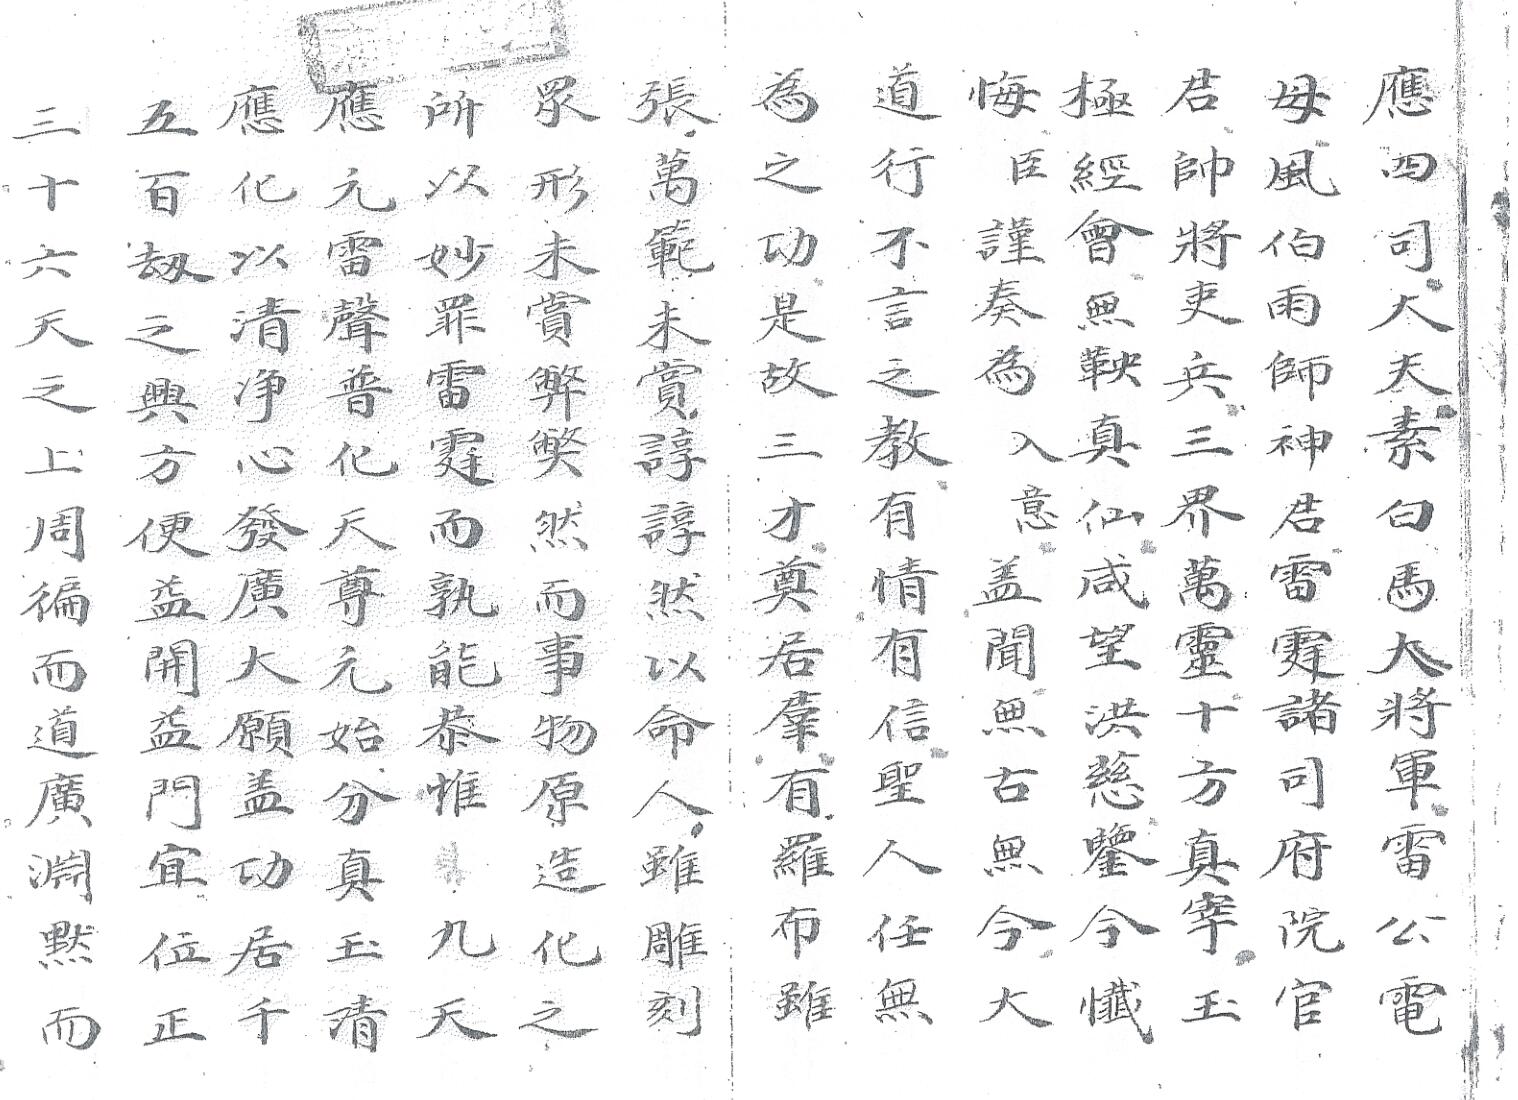 應四司大天素白馬大將軍雷公電
母風伯雨師神君雷霆諸司府院官
君帥將吏兵三界萬靈十方真宰玉
極經會無鞅真仙咸望洪慈鑒今懺
悔臣謹奏為入意盖聞無古無今大
道行不言之教有情有信聖人任無
為之功是故三才奠居羣有羅布雖
張萬範未賞諄諄然以命人雖雕刻
眾形未賞弊弊然而事物原造化之
所以妙罪雷霆而孰能恭惟九天
應元雷聲普化天尊元始分真玉清
應化以清净心發廣大願盖功居千
五百刼之興方便益開益門宜位正
三十六天之上周徧而道廣淵默而